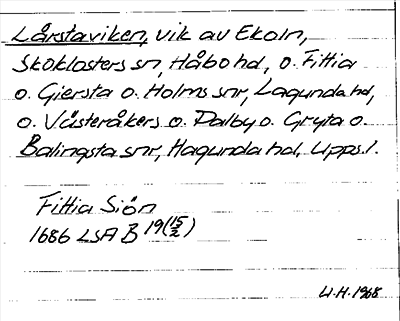 Lårstaviken, vik av Ekoln,
Skoklosters sn, Håbo hd, o. Fittia
o. Giersta o. Holms snr, Lagunda hd,
o. Västeråkers o. Dalby o. Gryta o.
Balingsta snr, Hagunda hd, Upps. l.
Fittia Siön
1686 LSA B 19(15/2)
U.H. 1968